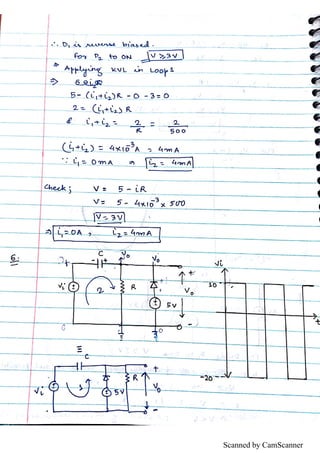 ∴ D₁ is reverse biased.
For D₂ to ON V ≥ 3V
* Applying KVL in Loop 1
⇒
5 - (i₁+i₂)R - 0 - 3 = 0
2 = (i₁+i₂) R
& i₁+i₂ = 2/R = 2/500
(i₁+i₂) = 4×10⁻³A = 4mA
∵ i₁ = 0mA ⇒ i₂ = 4mA
Check; V = 5 - iR
V = 5 - 4×10⁻³ × 500
V = 3V
⇒ i₁ = 0A, i₂ = 4mA
6:
C V₀ V₀ Vi
+ - + +
Vi 2 R 5V V₀ 10 t
-20
≡
C
Vi R 5V V₀ + -
Scanned by CamScanner